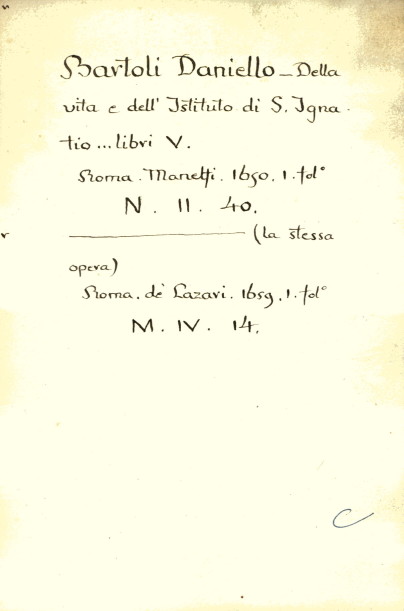 Bartoli Daniello — Della
vita e dell' Istituto di S. Igna-
tio ... libri V.
Roma. Manelfi. 1650. 1. fol°
N. II. 40.
——— (la stessa
opera)
Roma. de' Lazari. 1659. 1. fol°
M. IV. 14.
C